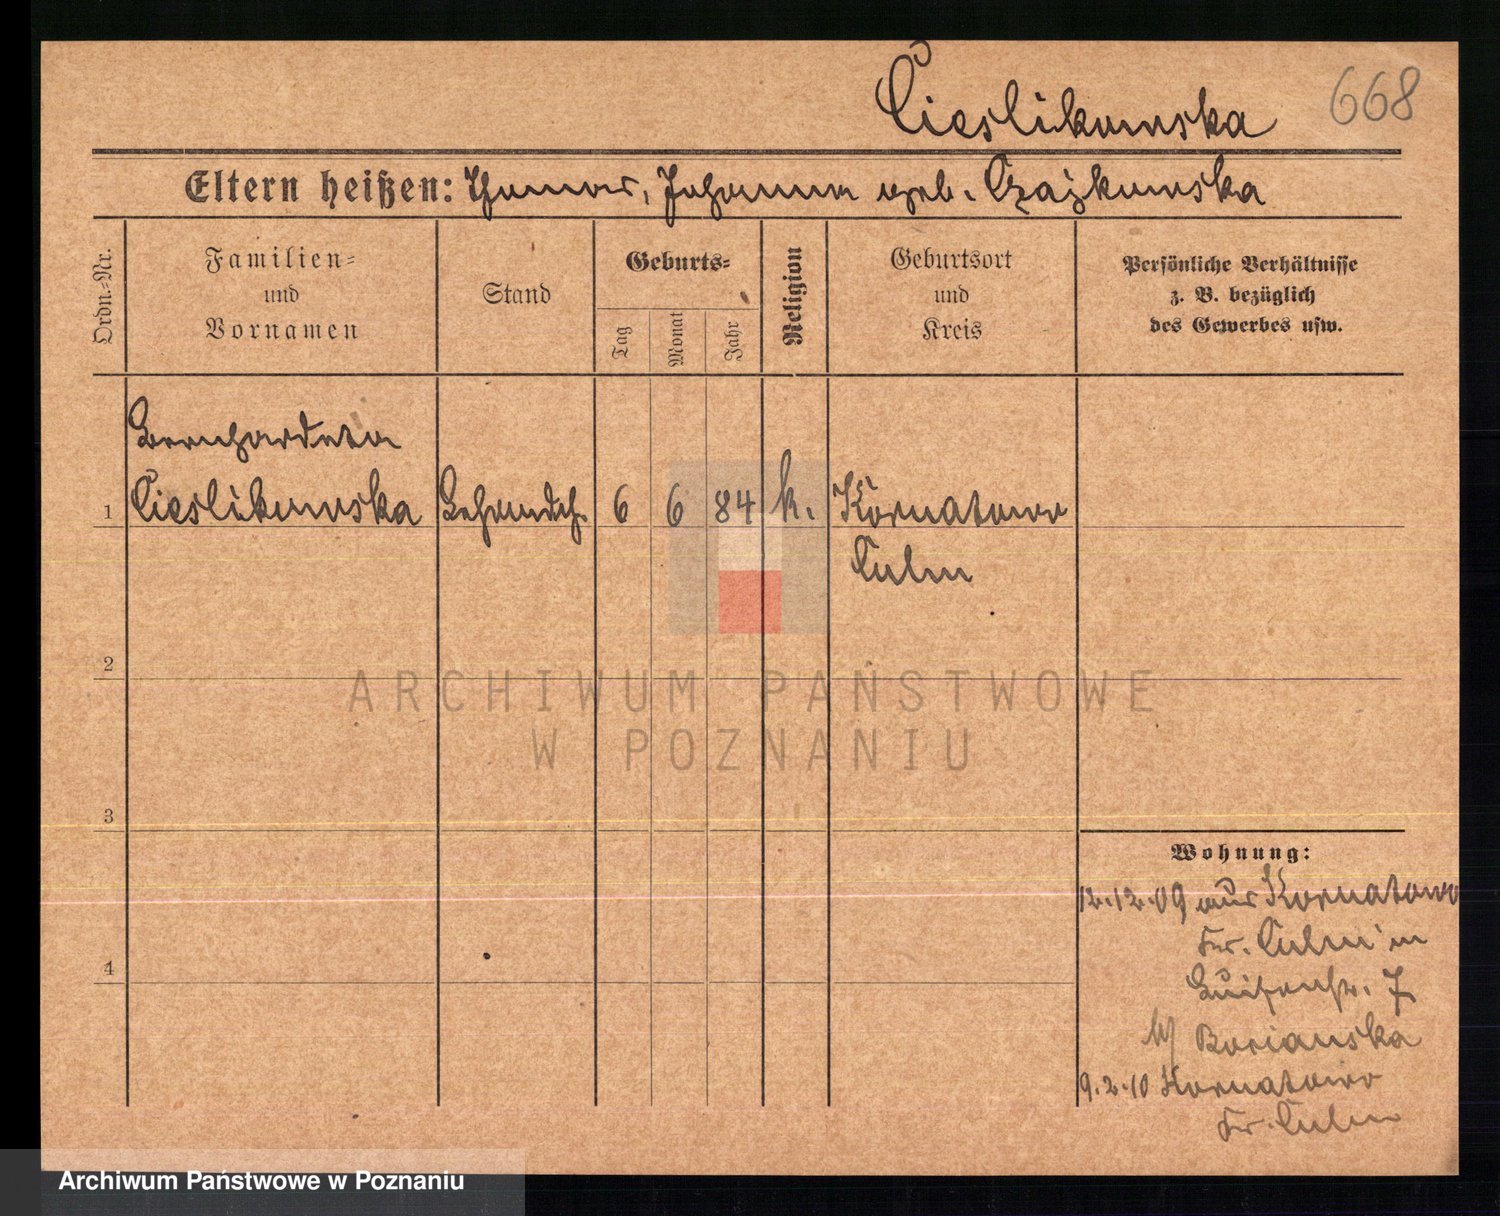 Cieslikowska 668
Eltern heißen: Thomas, Johanna geb. Czajkowska
Ordn.-Nr.
Familien-
und
Vornamen
Stand
Geburts-
Tag
Monat
Jahr
Religion
Geburtsort
und
Kreis
Persönliche Verhältnisse
z. B. bezüglich
des Gewerbes usw.
Bernhardeta
1 Cieslikowska 6 6 84 k. Kornatowo
Culm
2
ARCHIWUM PAŃSTWOWE
W POZNANIU
3
Wohnung:
12.12.09 aus Kornatowo
Kr. Culm in
Luisenstr. 7
b/ Borianska
4
9.2.10 Kornatowo
Kr. Culm
Archiwum Państwowe w Poznaniu